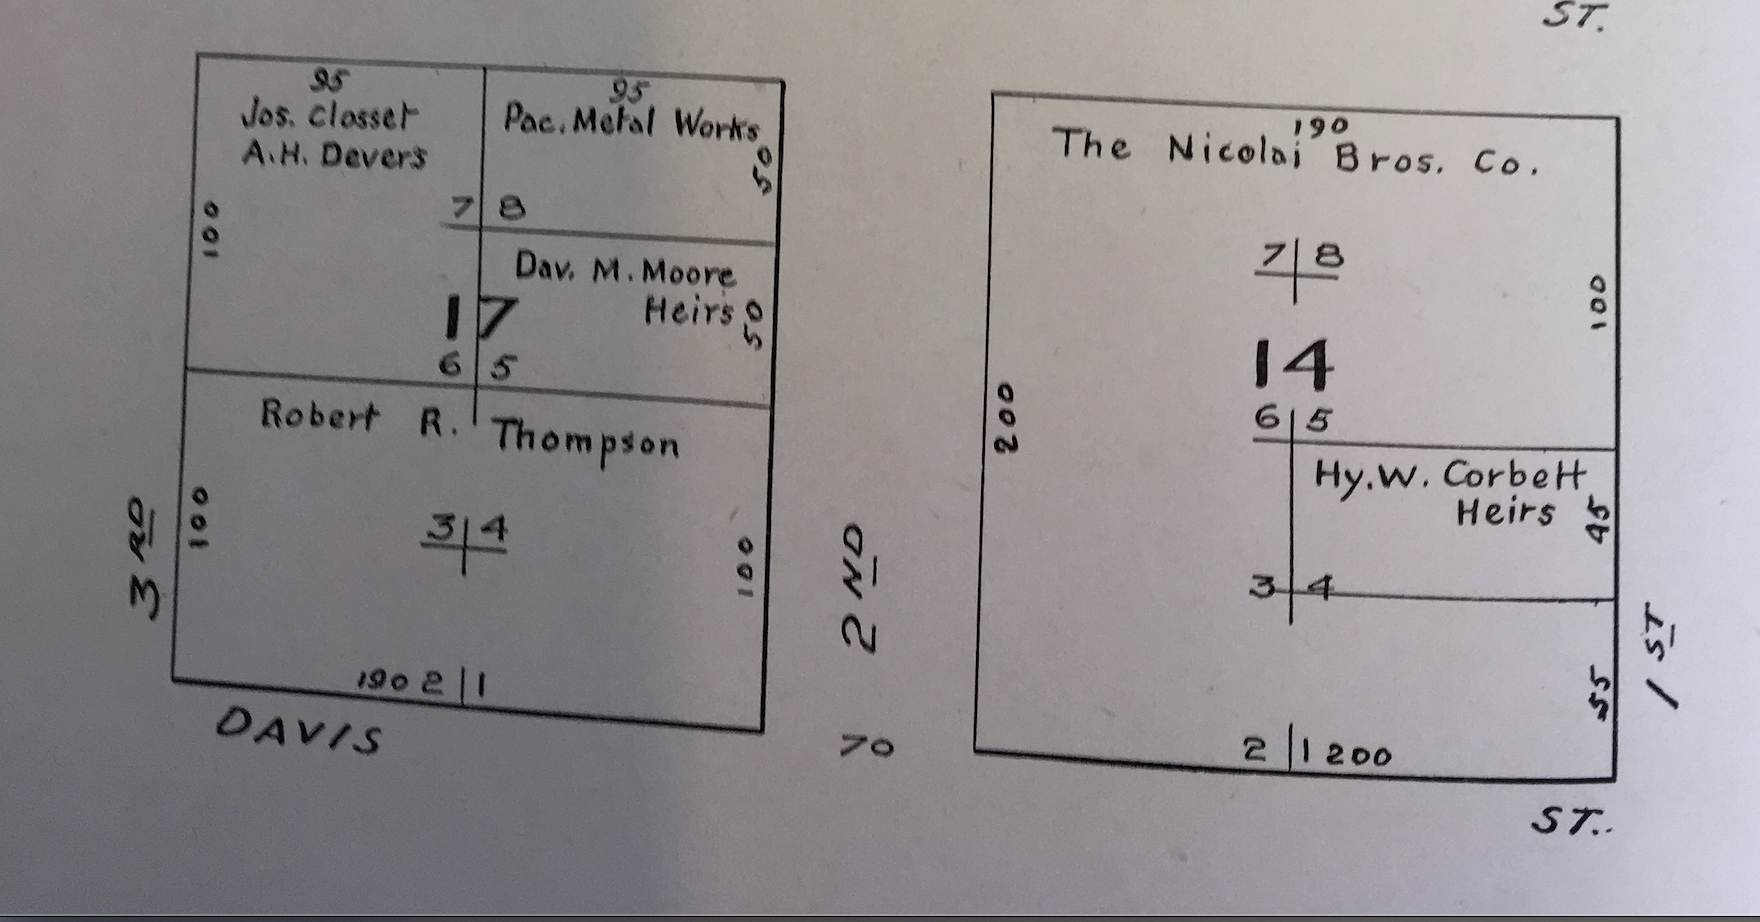 ST.
95
Jos. Closset
A.H. Devers
100
7
95
Pac. Metal Works
50
8
Dav. M. Moore
Heirs
50
17
6 5
Robert R. Thompson
100
3 4
100
190 2 1
3 RD
DAVIS
2 ND
70
190
The Nicolai Bros. Co.
7 8
100
14
200
6 5
Hy. W. Corbett
Heirs
45
3 4
55
2 1 200
1 ST
ST.